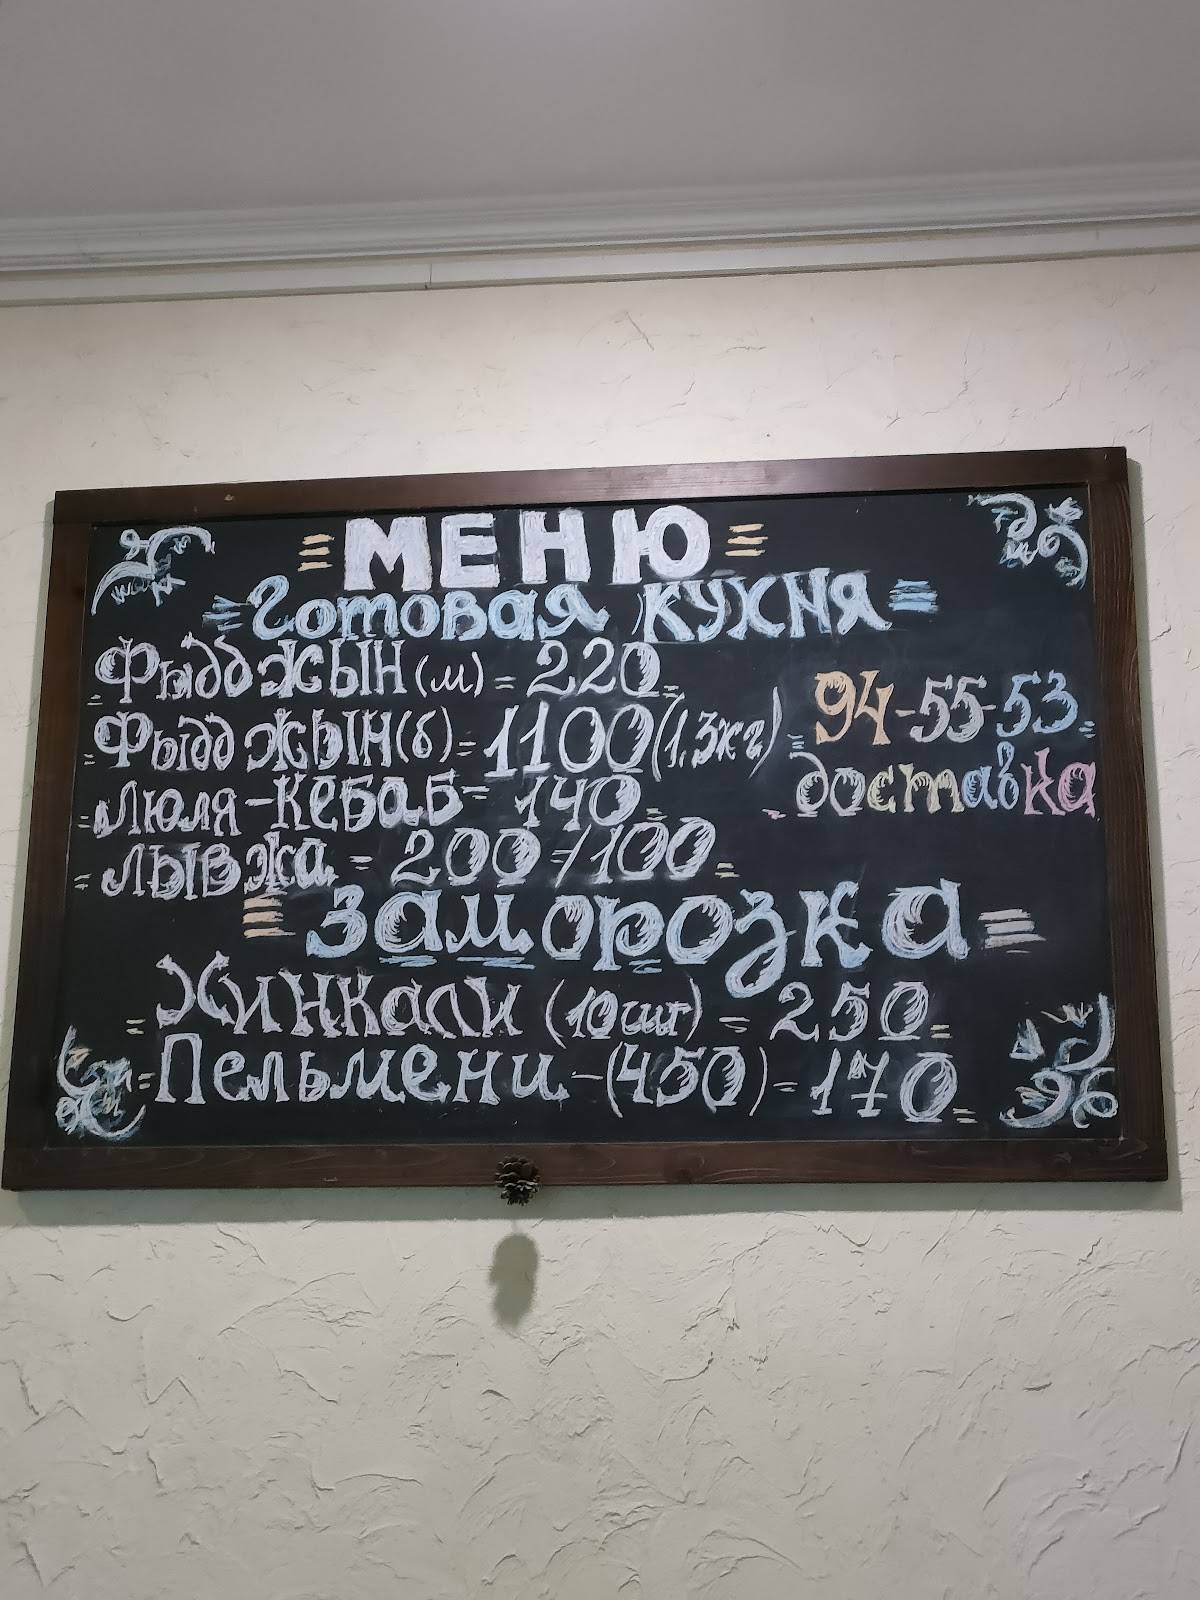 МЕНЮ
Готовая кухня
Фыдджын (м) = 220
Фыдджын (б) = 1100 (1,3кг)
94-55-53
доставка
Люля-кебаб = 140
Лывжа = 200/100
Заморозка
Хинкали (10шт) = 250
Пельмени - (450) = 170